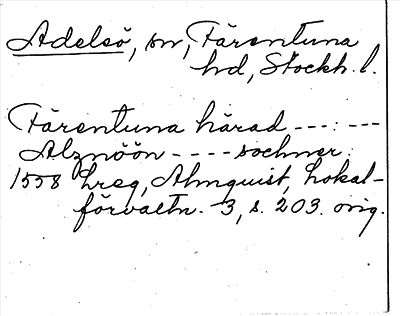 Adelsö, sn, Färentuna
hd, Stockh. l.
Färentuna härad ---:---
Alznöön ---- sochner:
1558 hreg, Almquist, Lokal-
förvaltn. 3, s. 203. orig.